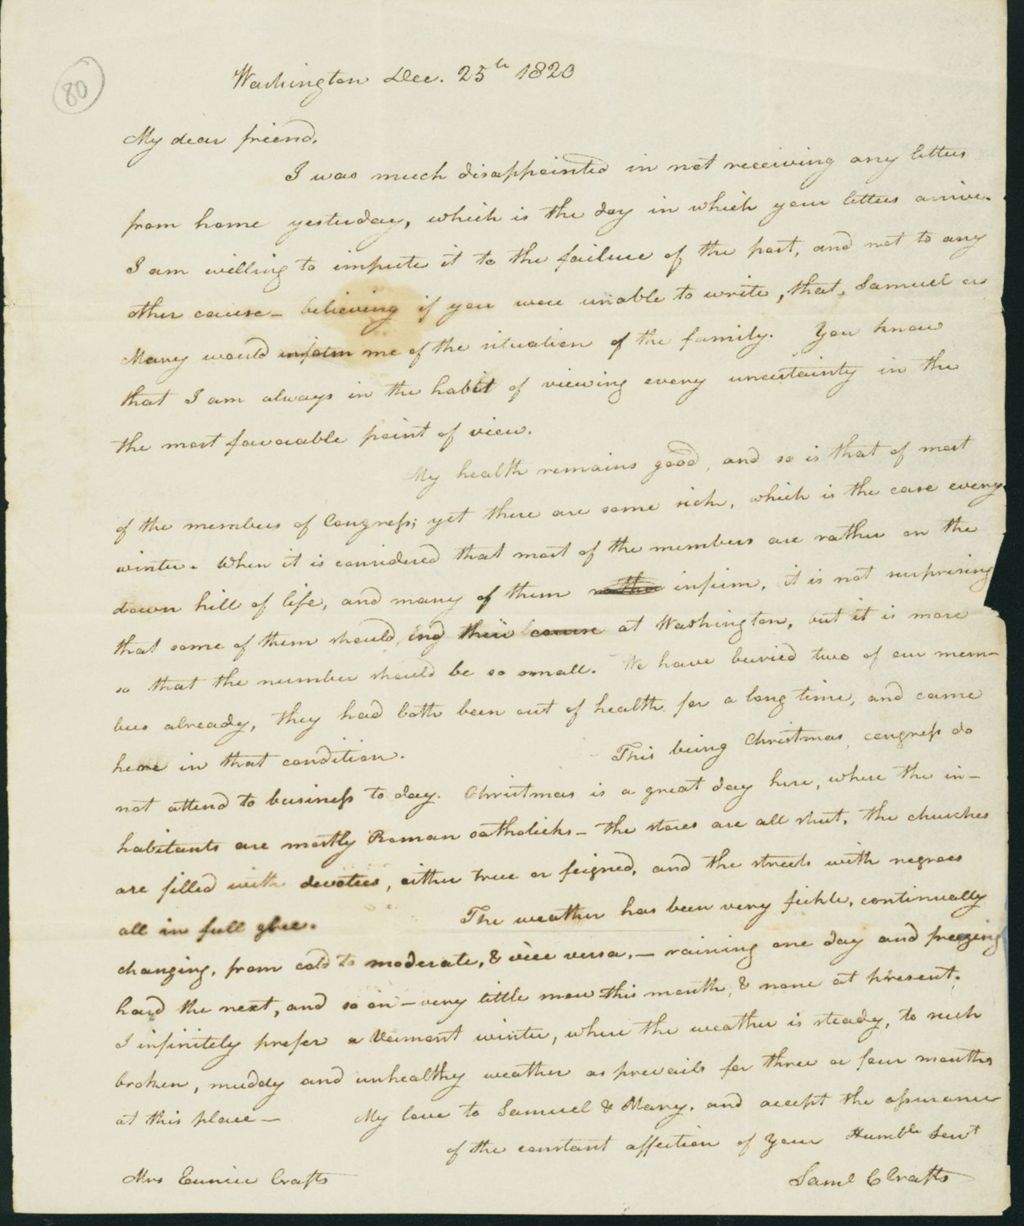 80
Washington Dec. 25th 1820
My dear friend,
I was much disappointed in not receiving any letters
from home yesterday, which is the day in which your letters arrive.
I am willing to impute it to the failure of the post, and not to any
other cause - believing if you were unable to write, that, Samuel or
Mary would inform me of the situation of the family. You know
that I am always in the habit of viewing every uncertainty in the
the most favourable point of view.
My health remains good, and so is that of most
of the members of Congress; yet there are some sick, which is the case every
winter. When it is considered that most of the members are rather on the
down hill of life, and many of them infirm, it is not surprising
that some of them should end their course at Washington, but it is more
so that the number should be so small. We have buried two of our mem-
bers already, they had both been out of health for a long time, and came
here in that condition. This being Christmas, congress do
not attend to business to day. Christmas is a great day here, where the in-
habitants are mostly Roman catholicks - the stores are all shut, the churches
are filled with devotees, either true or feigned, and the streets with negroes
all in full glee. The weather has been very fickle, continually
changing, from cold to moderate, & vice versa, - raining one day and freezing
hard the next, and so on - very little snow this month, & none at present.
I infinitely prefer a Vermont winter, where the weather is steady, to such
broken, muddy and unhealthy weather as prevails for three or four months
at this place - My love to Samuel & Mary, and accept the assurance
of the constant affection of your Humble Servt
Mrs Eunice Crafts Saml C Crafts